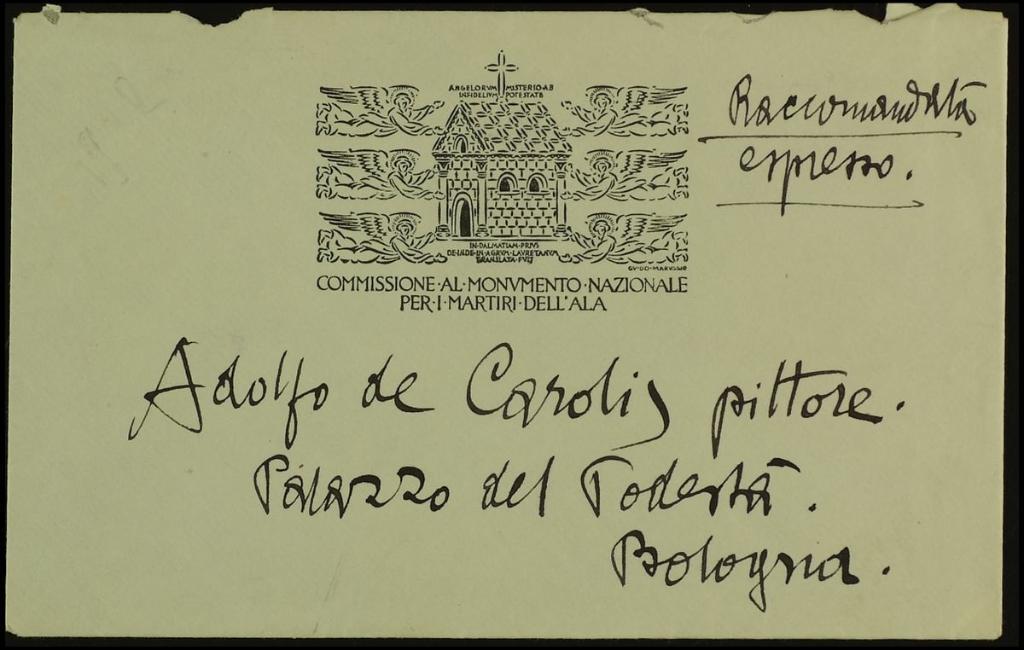 ANGELORVM MISTERIO AB
INFIDELIVM POTESTATE
IN·DALMATIAM·PRIVS
DE·INDE·IN·AGRVM·LAVRETANVM
TRANSLATA·FVIT
GVIDO·MARVSSIG
COMMISSIONE·AL·MONVMENTO·NAZIONALE
PER·I·MARTIRI·DELL'ALA
Raccomandata
espresso.
Adolfo de Carolis pittore.
Palazzo del Podestà.
Bologna.